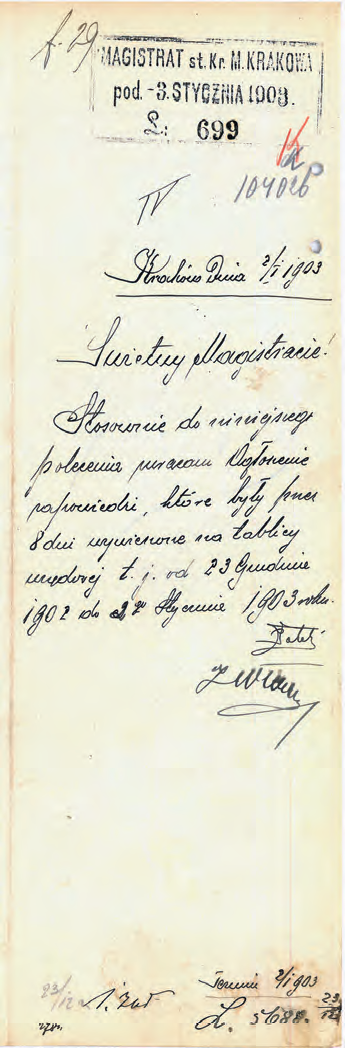 f. 29
MAGISTRAT st. Kr. M. KRAKOWA
pod. -3. STYCZNIA 1903.
L: 699
104026
IV
Kraków Dnia 2/I 1903
Świetny Magistracie!
Stosownie do niniejszego
polecenia zwracam Ogłoszenie
zapowiedzi, które były przez
8 dni wywieszone na tablicy
urzędowej t. j. od 23 Grudnia
1902 do 2go Stycznia 1903 roku.
23/12
1. Zał
Termin 2/I 903
L. 5688.